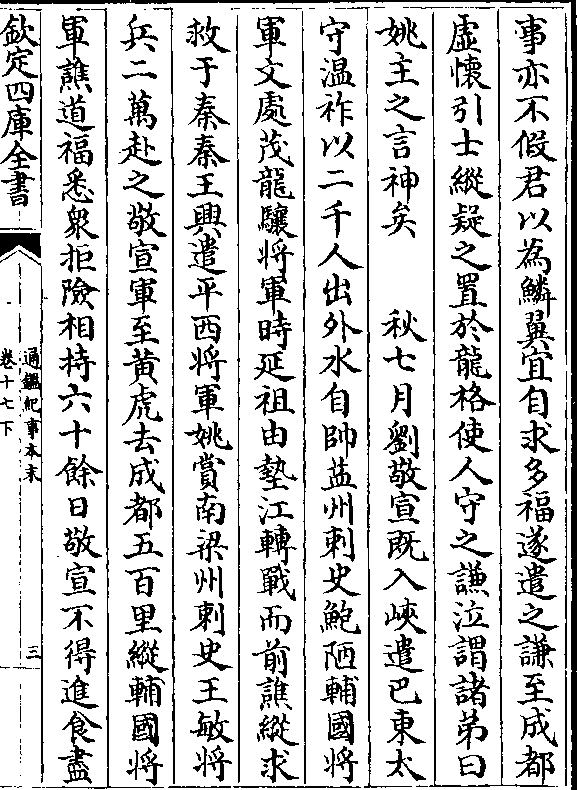 事亦不假君以為鱗翼宜自求多福遂遣之謙至成都
虚懷引士縱疑之置於龍格使人守之謙泣謂諸弟曰
姚主之言神矣　秋七月劉敬宣既入峽遣巴東太
守温祚以二千人出外水自帥益州刺史鮑陋輔國將
軍文處茂龍驤將軍時延祖由墊江轉戰而前譙縱求
救于秦秦王興遣平西將軍姚賞南梁州刺史王敏將
兵二萬赴之敬宣軍至黄虎去成都五百里縱輔國將
軍譙道福悉衆拒險相持六十餘日敬宣不得進食盡
欽定四庫全書
通鑑紀事本末
卷十七下
三